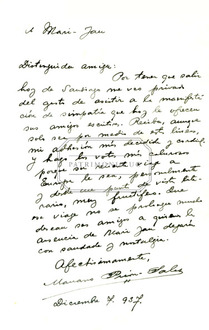 A Mari-Jan
Distinguida amiga:
Por tener que salir
hoy de Santiago me veo privado
del gusto de asistir a la manifesta
ción de simpatía que hoy le ofrecen
sus amigos escritores. Reciba, aunque
sólo sea por medio de estas líneas,
mi adhesión más decidida y cordial
y hago los votos más calurosos
porque su viaje a
Europa le sea, personalmente
y desde el punto de vista lite-
rario, muy fructífero. Que
ese viaje no se prolongue mucho
desean sus amigos a quienes la
ausencia de Mari Jan dejará
con saudade y nostalgia.
Afectísimamente,
Mariano Picón Salas
Diciembre 7. 937.